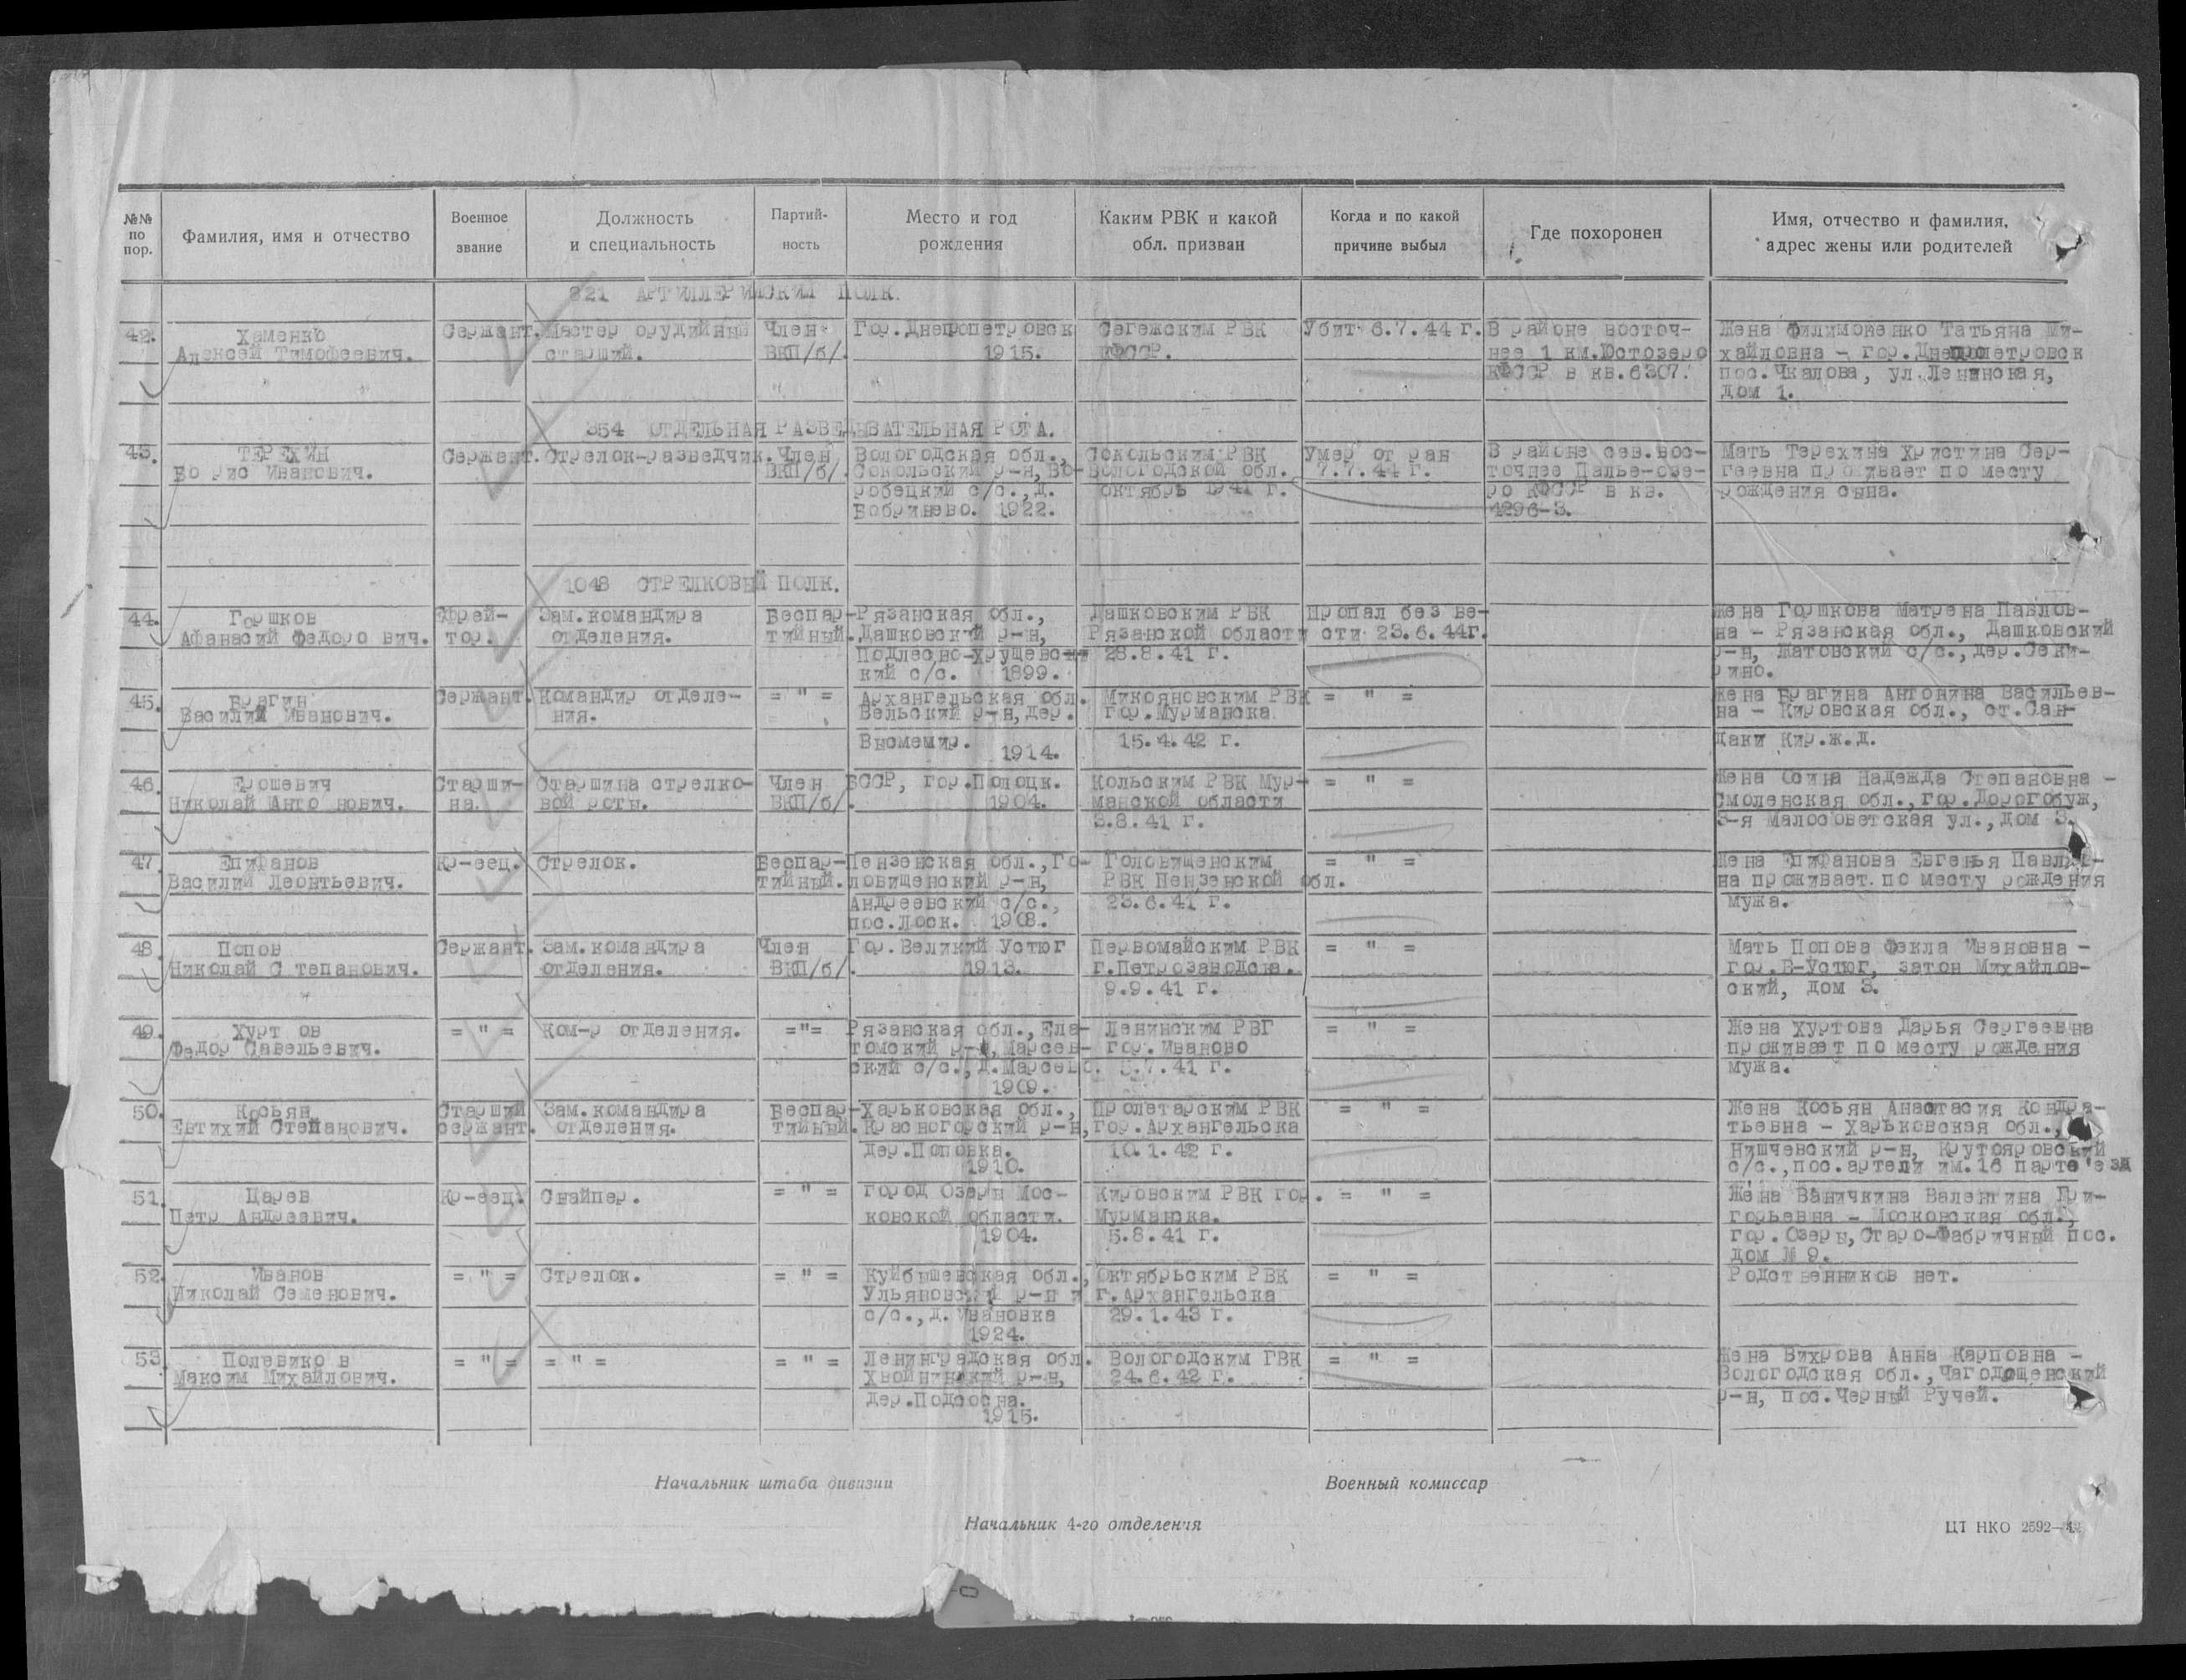 №№ по пор.
Фамилия, имя и отчество
Военное звание
Должность и специальность
Партий-ность
Место и год рождения
Каким РВК и какой обл. призван
Когда и по какой причине выбыл
Где похоронен
Имя, отчество и фамилия, адрес жены или родителей
821 АРТИЛЛЕРИЙСКИЙ ПОЛК.
42. Хаменко Сержант. Мастер орудийный Член Гор.Днепропетровск Сегежским РВК Убит 6.7.44 г. В районе восточ- Жена Филимоненко Татьяна Ми-
Алексей Тимофеевич. старший. ВКП/б/. 1915. КФССР. нее 1 км.Юстозеро хайловна - гор.Днепропетровск
КФССР в кв.6307. пос.Чкалова, ул.Ленинская,
дом 1.
354 ОТДЕЛЬНАЯ РАЗВЕДЫВАТЕЛЬНАЯ РОТА.
43. ТЕРЕХИН Сержант. Стрелок-разведчик. Член Вологодская обл., Сокольским РВК Умер от ран В районе сев.вос- Мать Терехина Христина Сер-
Бо рис Иванович. ВКП/б/. Сокольский р-н, Во- Вологодской обл. 7.7.44 г. точнее Палье-озе- геевна проживает по месту
робецкий с/с., д. октябрь 1941 г. ро КФССР в кв. рождения сына.
Бобринево. 1922. 4296-3.
1048 СТРЕЛКОВЫЙ ПОЛК.
44. Горшков Ефрей- Зам.командира Беспар- Рязанская обл., Дашковским РВК Пропал без ве- Жена Горшкова Матрена Павлов-
Афанасий Федоро вич. тор. отделения. тийный. Дашковский р-н, Рязанской области сти 23.6.44г. на - Рязанская обл., Дашковский
Подлесно-Хрущевс 28.8.41 г. р-н, Жатовский с/с., дер.Секи-
кий с/с. 1899. рино.
45. Брагин Сержант. Командир отделе- = " = Архангельская обл. Микояновским РВК = " = Жена Брагина Антонина Васильев-
Василий Иванович. ния. Вельский р-н, дер. гор.Мурманска на - Кировская обл., ст.Сан-
Вномемир. 15.4.42 г. даки Кир.ж.д.
1914.
46. Ерошевич Старши- Старшина стрелко- Член БССР, гор.Полоцк. Кольским РВК Мур- = " = Жена Осина Надежда Степановна -
Николай Анто нович. на. вой роты. ВКП/б/. 1904. манской области Смоленская обл., гор.Дорогобуж,
3.8.41 г. 3-я Малосоветская ул., дом 3.
47. Епифанов Кр-еец. Стрелок. Беспар- Пензенская обл., Го- Головищенским = " = Жена Епифанова Евгенья Павлов-
Василий Леонтьевич. тийный. ловищенский р-н, РВК Пензенской обл. на проживает по месту рождения
Андреевский с/с., 23.6.41 г. мужа.
пос.Лоск. 1908.
48. Попов Сержант. Зам.командира Член Гор.Великий Устюг Первомайским РВК = " = Мать Попова Фекла Ивановна -
Николай С тепанович. отделения. ВКП/б/. 1913. г.Петрозаводска. гор.В-Устюг, затон Михайлов-
9.9.41 г. ский, дом 3.
49. Хурт ов = " = Ком-р отделения. ="= Рязанская обл., Ела- Ленинским РВГ = " = Жена Хуртова Дарья Сергеевна
Федор Савельевич. томский р-н, Марсев- гор. Иваново проживает по месту рождения
ский с/с., д.Марсево. 5.7.41 г. мужа.
1909.
50. Косьян Старший Зам.командира Беспар- Харьковская обл., Пролетарским РВК = " = Жена Косьян Анастасия Кондра-
Евтихий Степанович. сержант. отделения. тийный. Красногорский р-н, гор.Архангельска тьевна - Харьковская обл.,
Дер.Поповка. 10.1.42 г. Нишчевский р-н, Крутояровский
1910. с/с., пос.артели им.16 партс'езд
51. Царев Кр-еец. Снайпер. = " = город Озеры Мос- Кировским РВК гор. = " = Жена Ваничкина Валентина Гри-
Петр Андреевич. ковской области. Мурманска. горьевна - Московская обл.,
1904. 5.8.41 г. гор.Озеры, Старо-Фабричный пос.
дом № 9.
52. Иванов = " = Стрелок. = " = Куйбышевская обл., Октябрьским РВК = " = Родственников нет.
Николай Семенович. Ульяновский р-н и г.Архангельска
с/с., д.Ивановка 29.1.43 г.
1924.
53 Полевико в = " = = " = = " = Ленинградская обл. Вологодским ГВК = " = Жена Вихрова Анна Карповна -
Максим Михайлович. Хвойнинский р-н, 24.6.42 г. Вологодская обл., Чагодощенский
дер.Подсосна. р-н, пос.Черный Ручей.
1915.
Начальник штаба дивизии
Военный комиссар
Начальник 4-го отделения
ЦТ НКО 2592—42